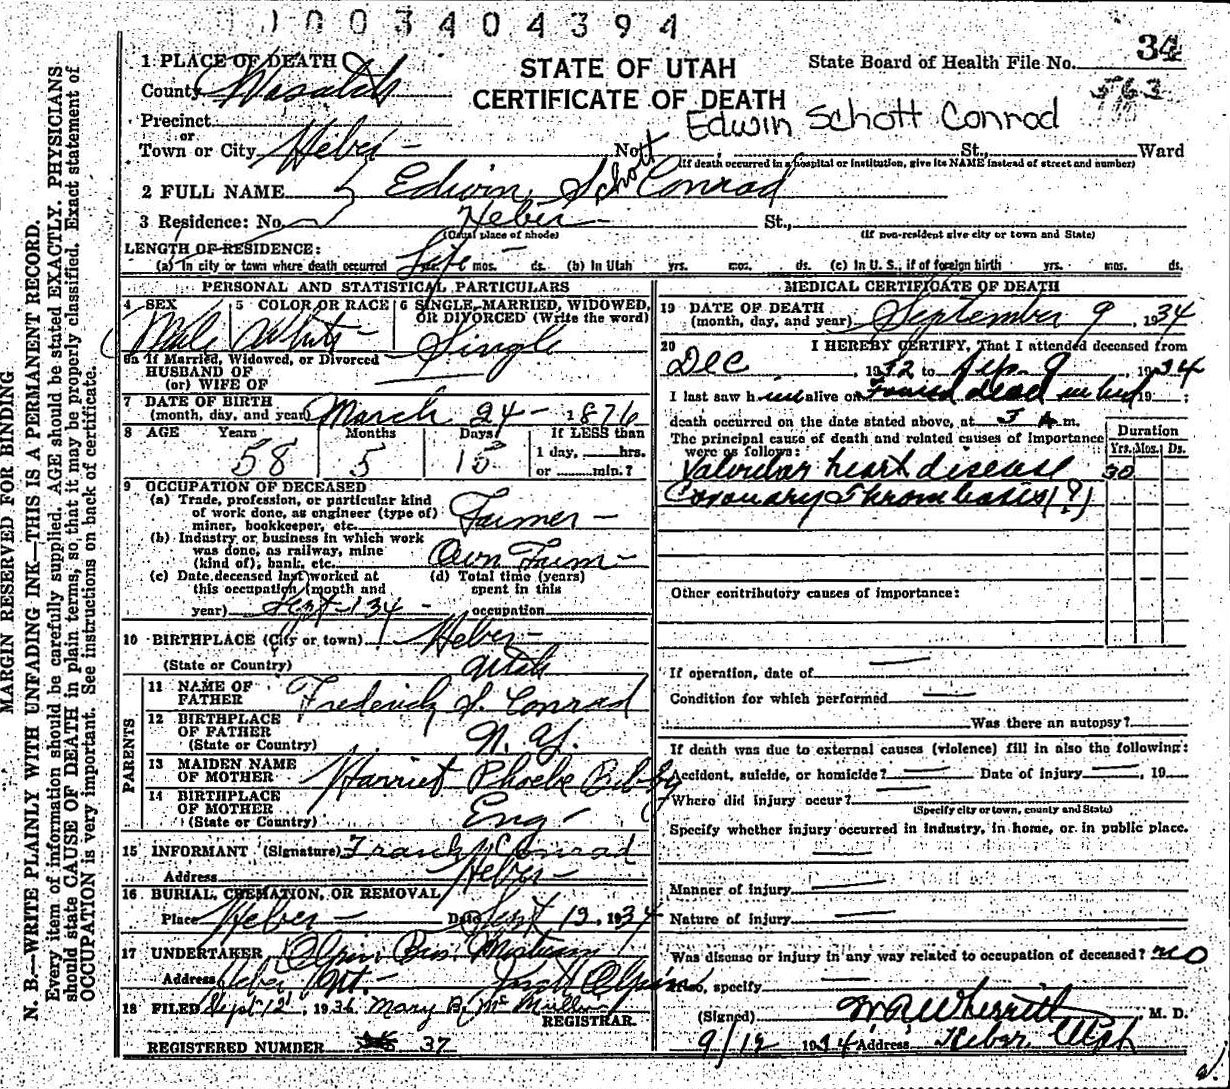 1003404394
34
1 PLACE OF DEATH
STATE OF UTAH
State Board of Health File No.
County Wasatch
CERTIFICATE OF DEATH
563
Precinct
Edwin Schott Conrad
or
Town or City Heber No. St., Ward
(If death occurred in a hospital or institution, give its NAME instead of street and number)
2 FULL NAME Edwin Schott Conrad
3 Residence: No. Heber St.,
(Usual place of abode) (If non-resident give city or town and State)
LENGTH OF RESIDENCE:
(a) In city or town where death occurred Life yrs. mos. ds. (b) In Utah yrs. mos. ds. (c) In U. S., if of foreign birth yrs. mos. ds.
PERSONAL AND STATISTICAL PARTICULARS
4 SEX 5 COLOR OR RACE 6 SINGLE, MARRIED, WIDOWED, OR DIVORCED (Write the word)
Male White Single
6a If Married, Widowed, or Divorced
HUSBAND OF
(or) WIFE OF
7 DATE OF BIRTH
(month, day, and year) March 24 - 1876
8 AGE Years Months Days If LESS than
58 5 15 1 day, hrs.
or min.?
9 OCCUPATION OF DECEASED
(a) Trade, profession, or particular kind
of work done, as engineer (type of)
miner, bookkeeper, etc. Farmer
(b) Industry or business in which work
was done, as railway, mine
(kind of), bank, etc. Own Farm
(c) Date deceased last worked at (d) Total time (years)
this occupation (month and spent in this
year) Sept - 34 - occupation
10 BIRTHPLACE (City or town) Heber
(State or Country) Utah
PARENTS
11 NAME OF
FATHER Frederick S. Conrad
12 BIRTHPLACE
OF FATHER
(State or Country) N. Y.
13 MAIDEN NAME
OF MOTHER Harriet Phoebe Bibby
14 BIRTHPLACE
OF MOTHER
(State or Country) Eng
15 INFORMANT (Signature) Frank Conrad
Address Heber
16 BURIAL, CREMATION, OR REMOVAL
Place Heber Date Sept 12, 1934
17 UNDERTAKER Olpin Bros. Mortuary
Address Heber Olpin
18 FILED Sept 12, 1934 Mary B. McMullin
REGISTRAR
REGISTERED NUMBER 37
MEDICAL CERTIFICATE OF DEATH
19 DATE OF DEATH
(month, day, and year) September 9, 1934
20 I HEREBY CERTIFY, That I attended deceased from
Dec 1932 to Sep. 9 1934
I last saw him alive on Found dead in bed 19 ;
death occurred on the date stated above, at 3 A m.
The principal cause of death and related causes of importance
were as follows:
Duration
Yrs. Mos. Ds.
Valvular heart disease 30
Coronary Thrombosis (?)
Other contributory causes of importance:
If operation, date of
Condition for which performed
Was there an autopsy?
If death was due to external causes (violence) fill in also the following:
Accident, suicide, or homicide? Date of injury , 19
Where did injury occur?
(Specify city or town, county and State)
Specify whether injury occurred in industry, in home, or in public place.
Manner of injury
Nature of injury
Was disease or injury in any way related to occupation of deceased? no
If so, specify
(Signed) W R Wherritt M. D.
9/12 1934 Address Heber, Utah
MARGIN RESERVED FOR BINDING
N. B.—WRITE PLAINLY WITH UNFADING INK—THIS IS A PERMANENT RECORD.
Every item of information should be carefully supplied. AGE should be stated EXACTLY. PHYSICIANS
should state CAUSE OF DEATH in plain terms, so that it may be properly classified. Exact statement of
OCCUPATION is very important. See instructions on back of certificate.